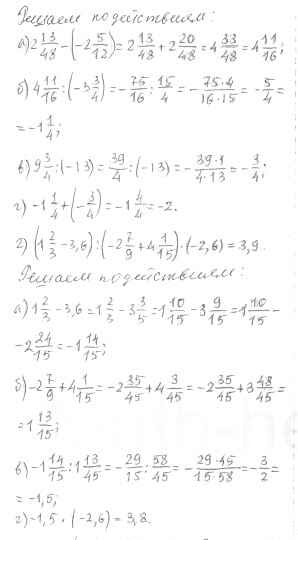 Решаем по действиям:
а) 2 13/48 - (-2 5/12) = 2 13/48 + 2 20/48 = 4 33/48 = 4 11/16;
б) 4 11/16 : (-3 3/4) = - 75/16 : 15/4 = - 75·4/16·15 = - 5/4 =
= -1 1/4;
в) 9 3/4 : (-13) = 39/4 : (-13) = - 39·1/4·13 = - 3/4;
г) -1 1/4 + (- 3/4) = -1 4/4 = -2.
2) (1 2/3 - 3,6) : (-2 7/9 + 4 1/15) · (-2,6) = 3,9.
Решаем по действиям:
а) 1 2/3 - 3,6 = 1 2/3 - 3 3/5 = 1 10/15 - 3 9/15 = 1 10/15 -
- 2 24/15 = -1 14/15;
б) -2 7/9 + 4 1/15 = -2 35/45 + 4 3/45 = -2 35/45 + 3 48/45 =
= 1 13/15;
в) -1 14/15 : 1 13/45 = - 29/15 : 58/45 = - 29·45/15·58 = - 3/2 =
= -1,5;
г) -1,5 · (-2,6) = 3,8.